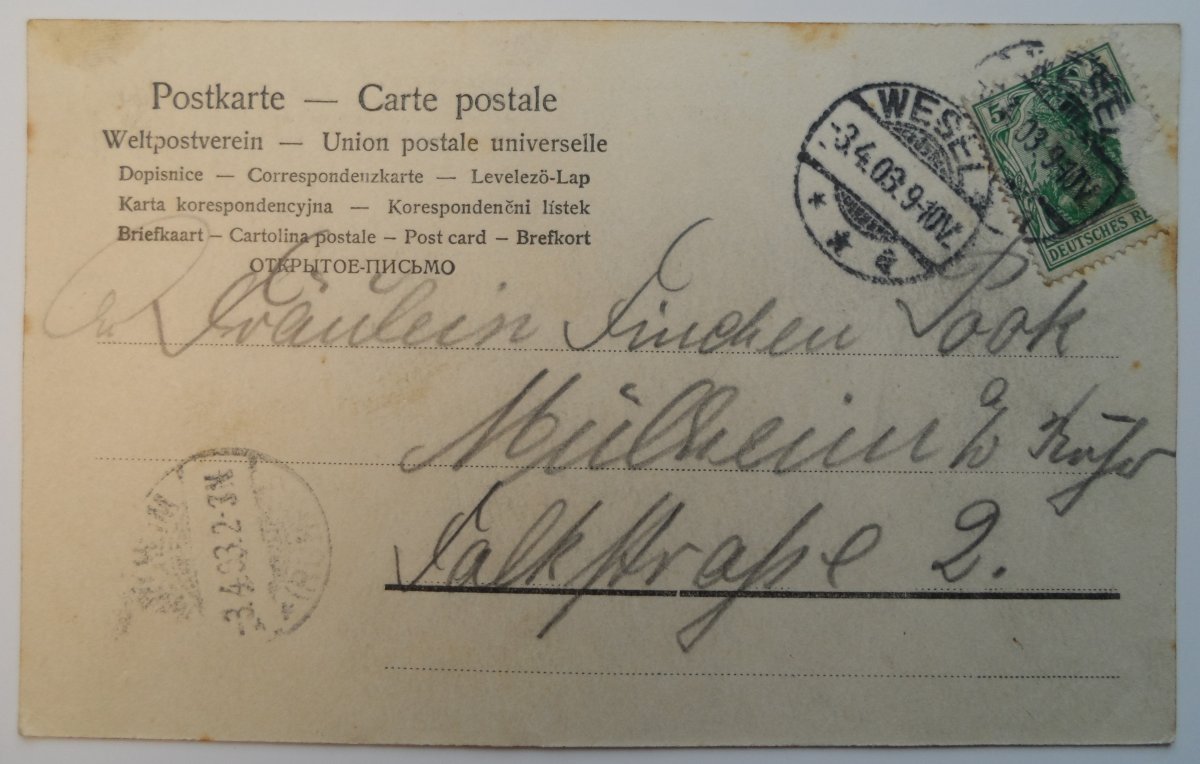 Postkarte — Carte postale
Weltpostverein — Union postale universelle
Dopisnice — Correspondenzkarte — Levelező-Lap
Karta korespondencyjna — Korespondenčni lístek
Briefkaart – Cartolina postale – Post card – Brefkort
ОТКРЫТОЕ-ПИСЬМО
WESEL
-3.4.03.9-10V.
* * a
5
DEUTSCHES RE
SEL
03.9-10V.
An Fräulein Finchen Pook
Mülheim a/d Ruhr
Falkstraße 2.
-3.4.03.2-3N